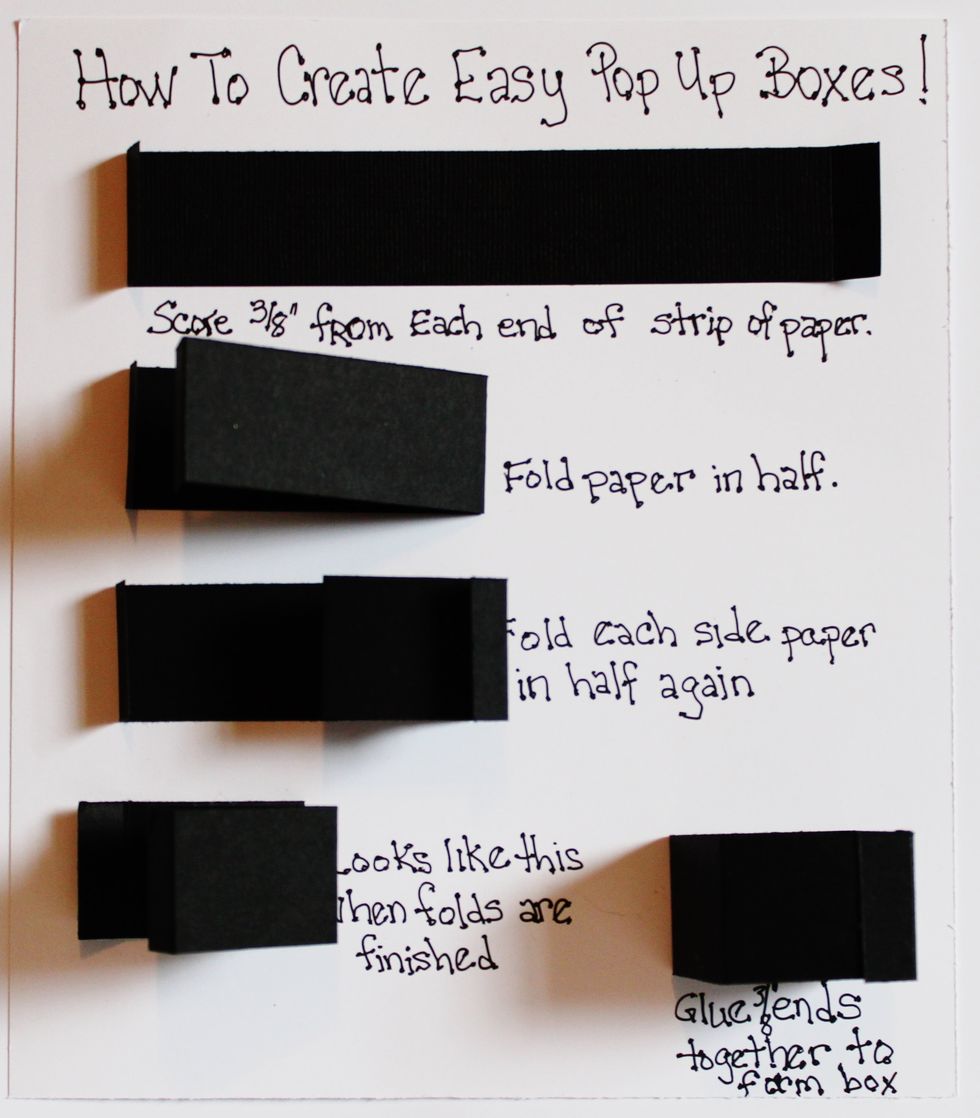 How To Create Easy Pop Up Boxes!
Score 3/8" from Each end of strip of paper.
Fold paper in half.
Fold each side paper
in half again
Looks like this
when folds are
finished
Glue 3/8" ends
together to
form box